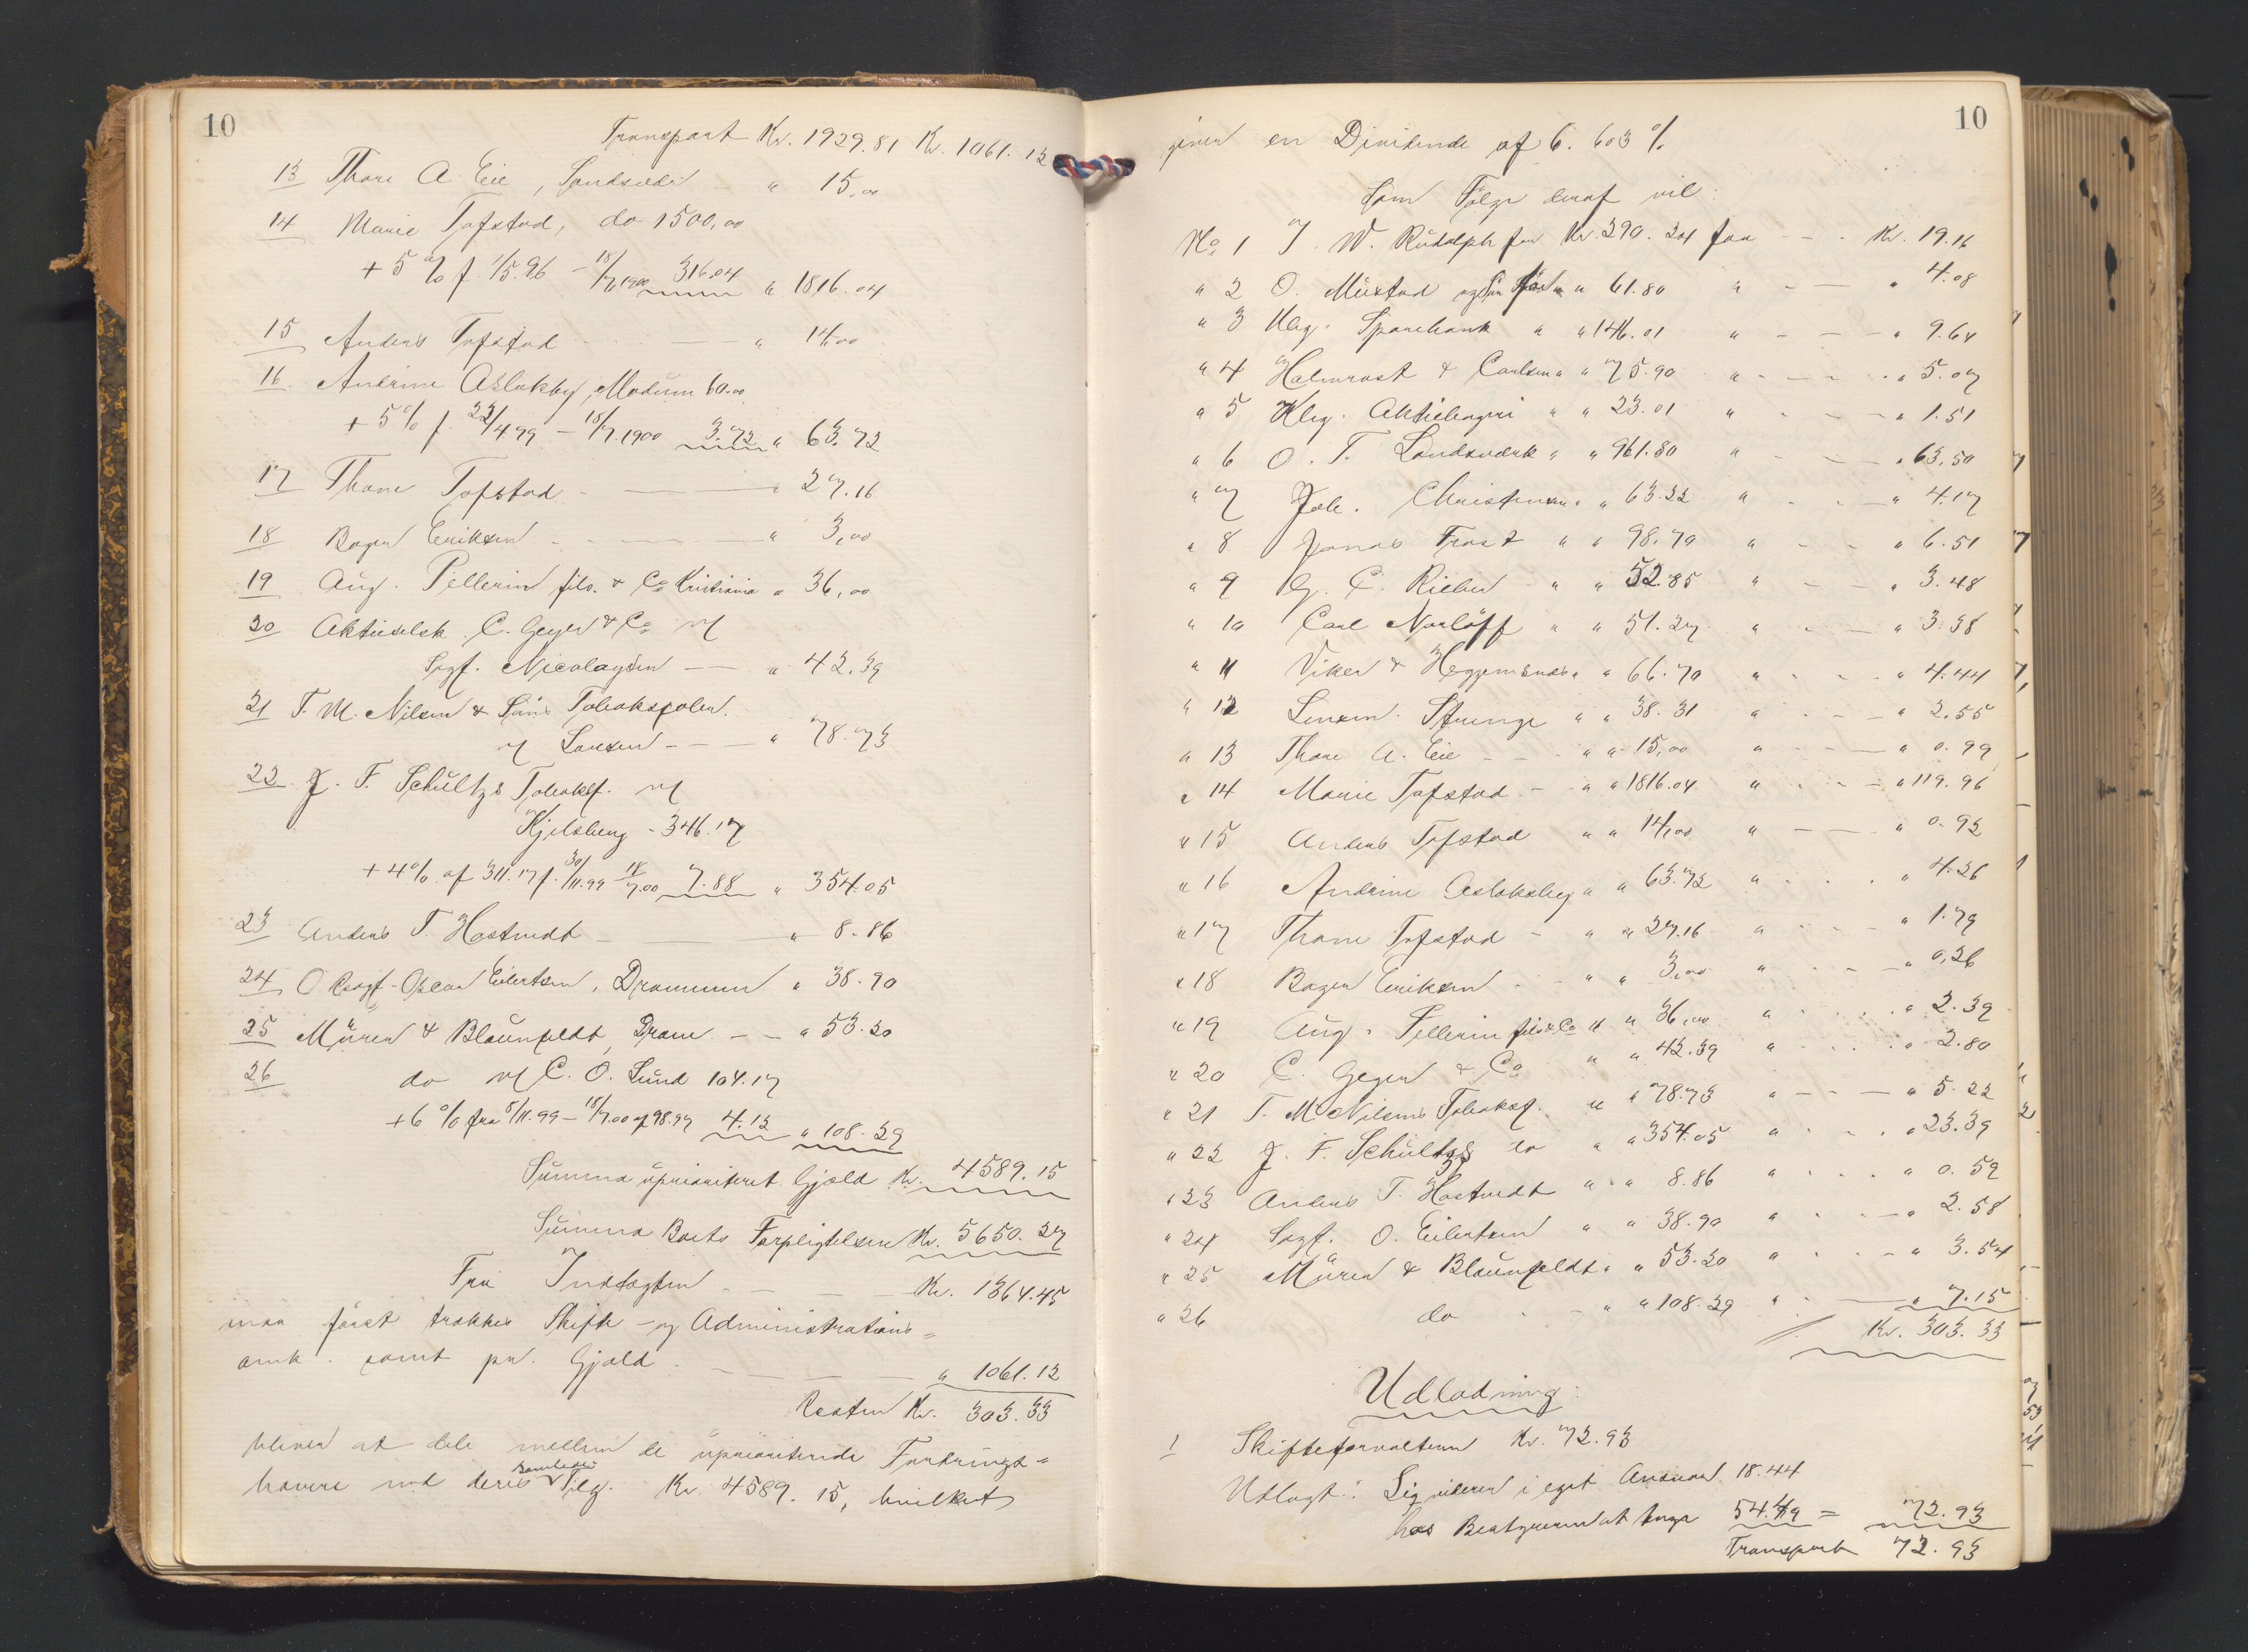 10
Transport Kr. 1929.81 Kr. 1061.12
13 Thore A. Eie, Sandsvær - " 15,00
14 Marie Tofstad, do 1500,00
+ 5 % f. 1/5.96 - 18/7 1900 316.04 " 1816.04
15 Anders Tofstad - - " 14,00
16 Andrine Aslaksby, Modum 60.00
+ 5 % f. 22/4 99 - 18/7 1900 3.72 " 63.72
17 Thore Tofstad - " 27.16
18 Bager Eriksen - - " 3,00
19 Aug. Pellerin fils. & Co Kristiania " 36,00
20 Aktieselsk. C. Geyer & Co v/
Sagf. Nicolaysen - " 42.39
21 T. M. Nilsen & Søns Tobaksfabr.
v/ Larsen - - " 78.73
22 J. F. Schultzs Tobaksf. v/
Kjelsberg - 346.17
+ 4 % af 311.17 f. 30/11.99 - 18/7.00 7.88 " 354.05
23 Anders T. Hostvedt - " 8.86
24 O.Rsagf. Oscar Eilertsen, Drammen " 38.90
25 Müren & Blaunfeldt, Dram. - - " 53.20
26 do v/ C. O. Lund 104.17
+ 6 % fra 5/11.99 - 18/7.00 af 98.97 4.12 " 108.29
Summa uprioriteret Gjæld Kr. 4589.15
Summa Boets Forpligtelser Kr. 5650.27
Fra Indtægten - - Kr. 1364.45
maa først trækkes Skifte- og Administrations=
omk. samt pr. Gjæld - - " 1061.12
Resten Kr. 303.33
bliver at dele mellem de uprioriterede Fordrings=
havere med deres samlede Tilg. Kr. 4589.15, hvilket
10
giver en Dividende af 6.603 %
Som Følge deraf vil:
No 1 J. W. Rudolph for Kr. 290.24 faa - - Kr. 19.16
" 2 O. Mustad og Søn " " 61.80 " - - " 4.08
" 3 Kbg. Sparebank " " 146.01 " - - " 9.64
" 4 Halmrast & Carlsen " " 75.90 " - - " 5.07
" 5 Kbg. Aktiebageri " " 23.01 " - - " 1.51
" 6 O. T. Landsværk " " 961.80 " - - " 63.50
" 7 Joh. Christensen " " 63.22 " - - " 4.17
" 8 Jonas Frost " " 98.70 " - - " 6.51
" 9 G. C. Rieber " " 52.85 " - - " 3.48
" 10 Carl Norløff " " 51.27 " - - " 3.38
" 11 Viker & Heggemsnes " " 66.70 " - - " 4.44
" 12 Lensm. Strunge " " 38.31 " - - " 2.55
" 13 Thore A. Eie - - " " 15,00 " - - " 0.99
" 14 Marie Tofstad - " " 1816.04 " - - " 119.96
" 15 Anders Tofstad " " 14,00 " - - " 0.92
" 16 Andrine Aslaksby " " 63.72 " - - " 4.26
" 17 Thore Tofstad - " " 27.16 " - - " 1.79
" 18 Bager Eriksen - - " " 3,00 " - - " 0,26
" 19 Aug. Pellerin fils & Co " " 36,00 " - - " 2.39
" 20 C. Geyer & Co " " 42.39 " - - " 2.80
" 21 T. M. Nilsens Tobaksf. " " 78.73 " - - " 5.22
" 22 J. F. Schultzs do " " 354.05 " - - " 23.39
" 23 Anders T. Hostvedt " " 8.86 " - - " 0.59
" 24 Sagf. O. Eilertsen " " 38.90 " - - " 2.58
" 25 Müren & Blaunfeldt " " 53.20 " - - " 3.54
" 26 do - - " " 108.29 " - - " 7.15
Kr. 303.33
Udlodning:
1 Skifteforvalteren Kr. 72.93
Udlagt: Ligviderer i eget Ansvar 18.44
hos Bestyreren at tage 54.49 = 72.93
Transport 72.93